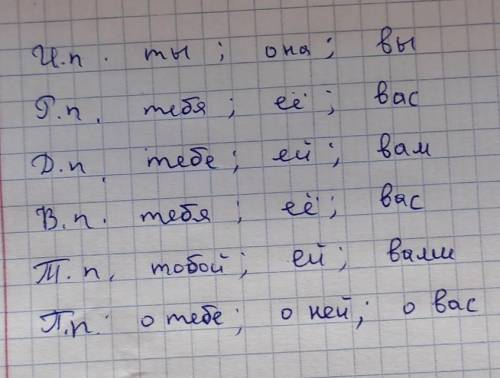 И.п. ты; она; вы
Р.п. тебя; её; вас
Д.п. тебе; ей; вам
В.п. тебя; её; вас
Т.п. тобой; ей; вами
П.п. о тебе; о ней; о вас